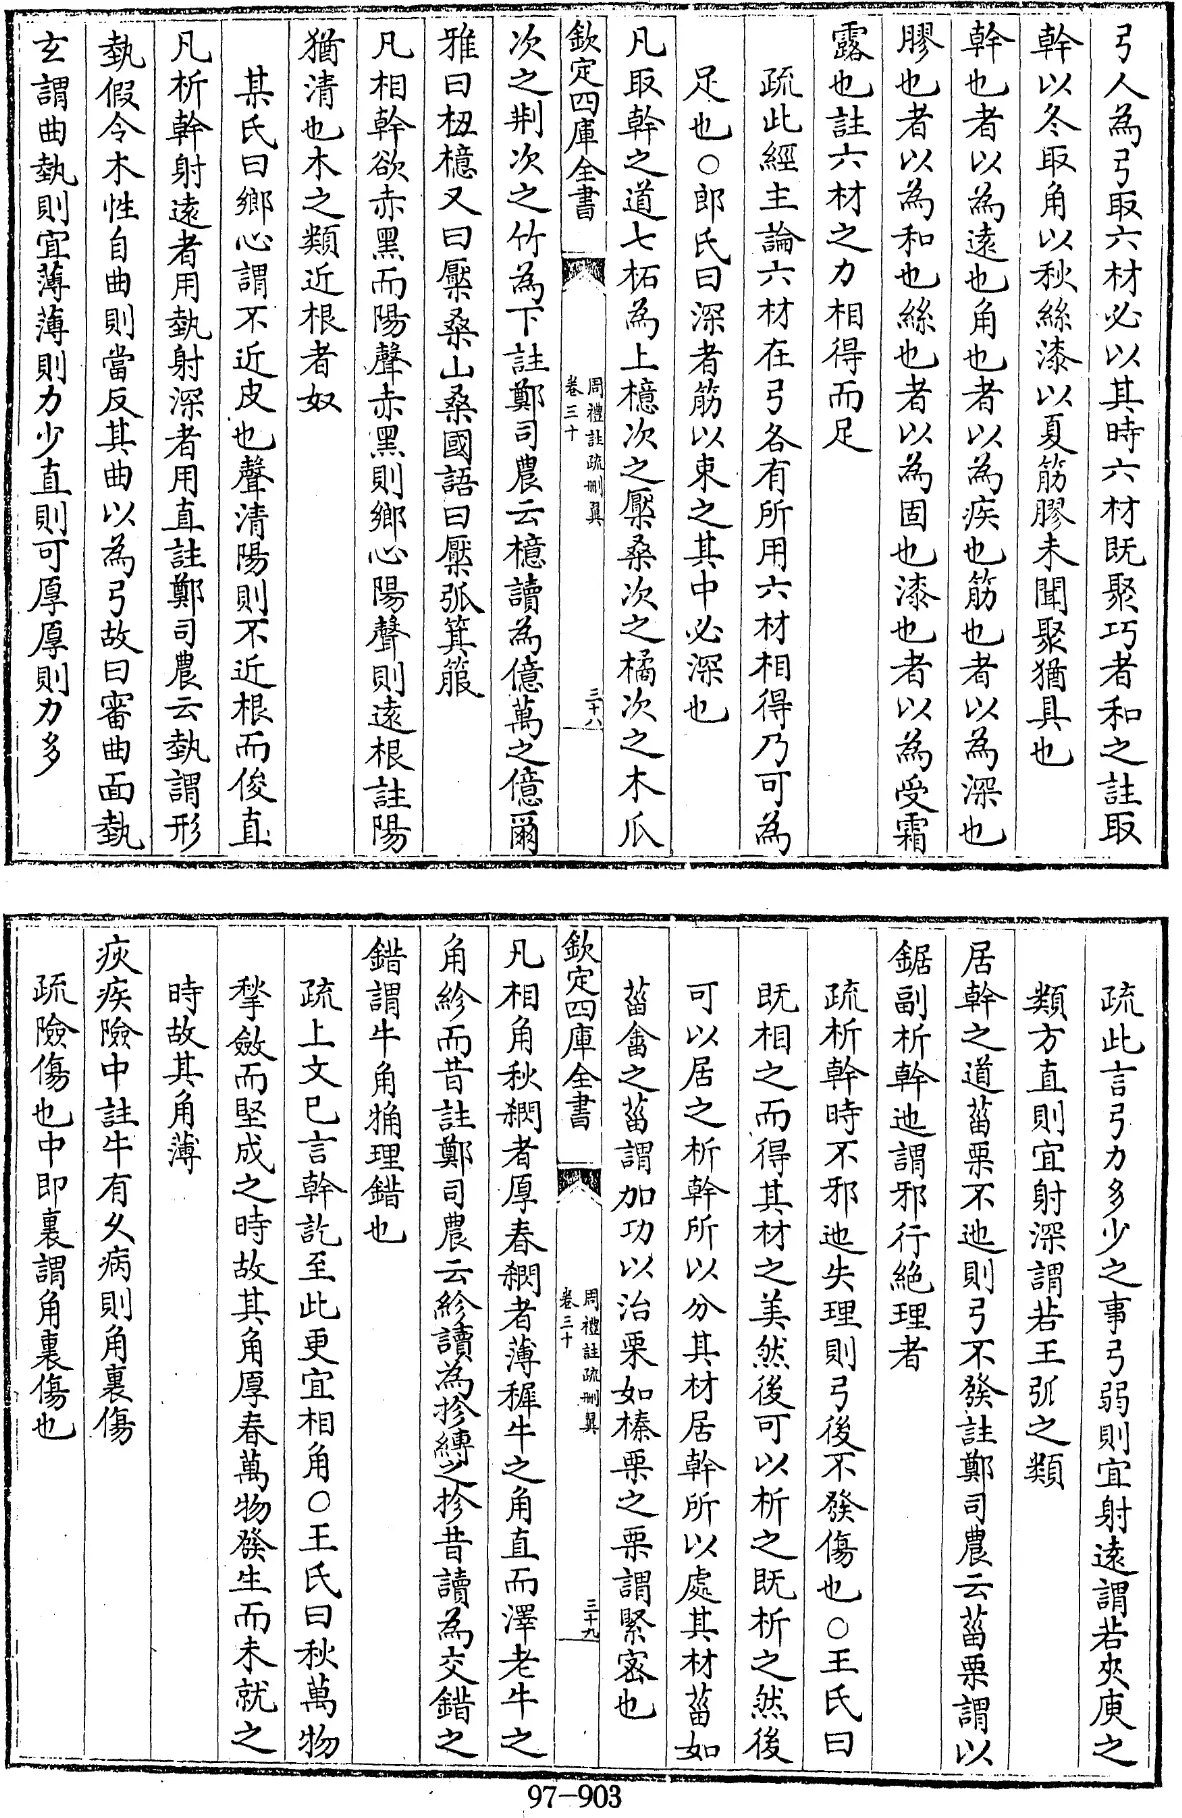 弓人為弓取六材必以其時六材既聚巧者和之註取
幹以冬取角以秋絲漆以夏筋膠未聞聚猶具也
幹也者以為遠也角也者以為疾也筋也者以為深也
膠也者以為和也絲也者以為固也漆也者以為受霜
露也註六材之力相得而足
疏此經主論六材在弓各有所用六材相得乃可為
足也○郎氏曰深者筋以束之其中必深也
凡取幹之道七柘為上檍次之檿桑次之橘次之木瓜
欽定四庫全書
周禮註疏刪翼
卷三十
三十八
次之荆次之竹為下註鄭司農云檍讀為億萬之億爾
雅曰杻檍又曰檿桑山桑國語曰檿弧箕箙
凡相幹欲赤黑而陽聲赤黑則鄉心陽聲則遠根註陽
猶清也木之類近根者奴
某氏曰鄉心謂不近皮也聲清陽則不近根而俊直
凡析幹射遠者用埶射深者用直註鄭司農云埶謂形
埶假令木性自曲則當反其曲以為弓故曰審曲面埶
玄謂曲埶則宜薄薄則力少直則可厚厚則力多
疏此言弓力多少之事弓弱則宜射遠謂若夾庾之
類方直則宜射深謂若王弧之類
居幹之道菑栗不迆則弓不發註鄭司農云菑栗謂以
鋸副析幹迆謂邪行絶理者
疏析幹時不邪迆失理則弓後不發傷也○王氏曰
既相之而得其材之美然後可以析之既析之然後
可以居之析幹所以分其材居幹所以處其材菑如
菑畬之菑謂加功以治栗如榛栗之栗謂緊密也
欽定四庫全書
周禮註疏刪翼
卷三十
三十九
凡相角秋閷者厚春閷者薄穉牛之角直而澤老牛之
角紾而昔註鄭司農云紾讀為抮縛之抮昔讀為交錯之
錯謂牛角觕理錯也
疏上文已言幹訖至此更宜相角○王氏曰秋萬物
揫斂而堅成之時故其角厚春萬物發生而未就之
時故其角薄
疢疾險中註牛有久病則角裏傷
疏險傷也中即裏謂角裏傷也
97-903